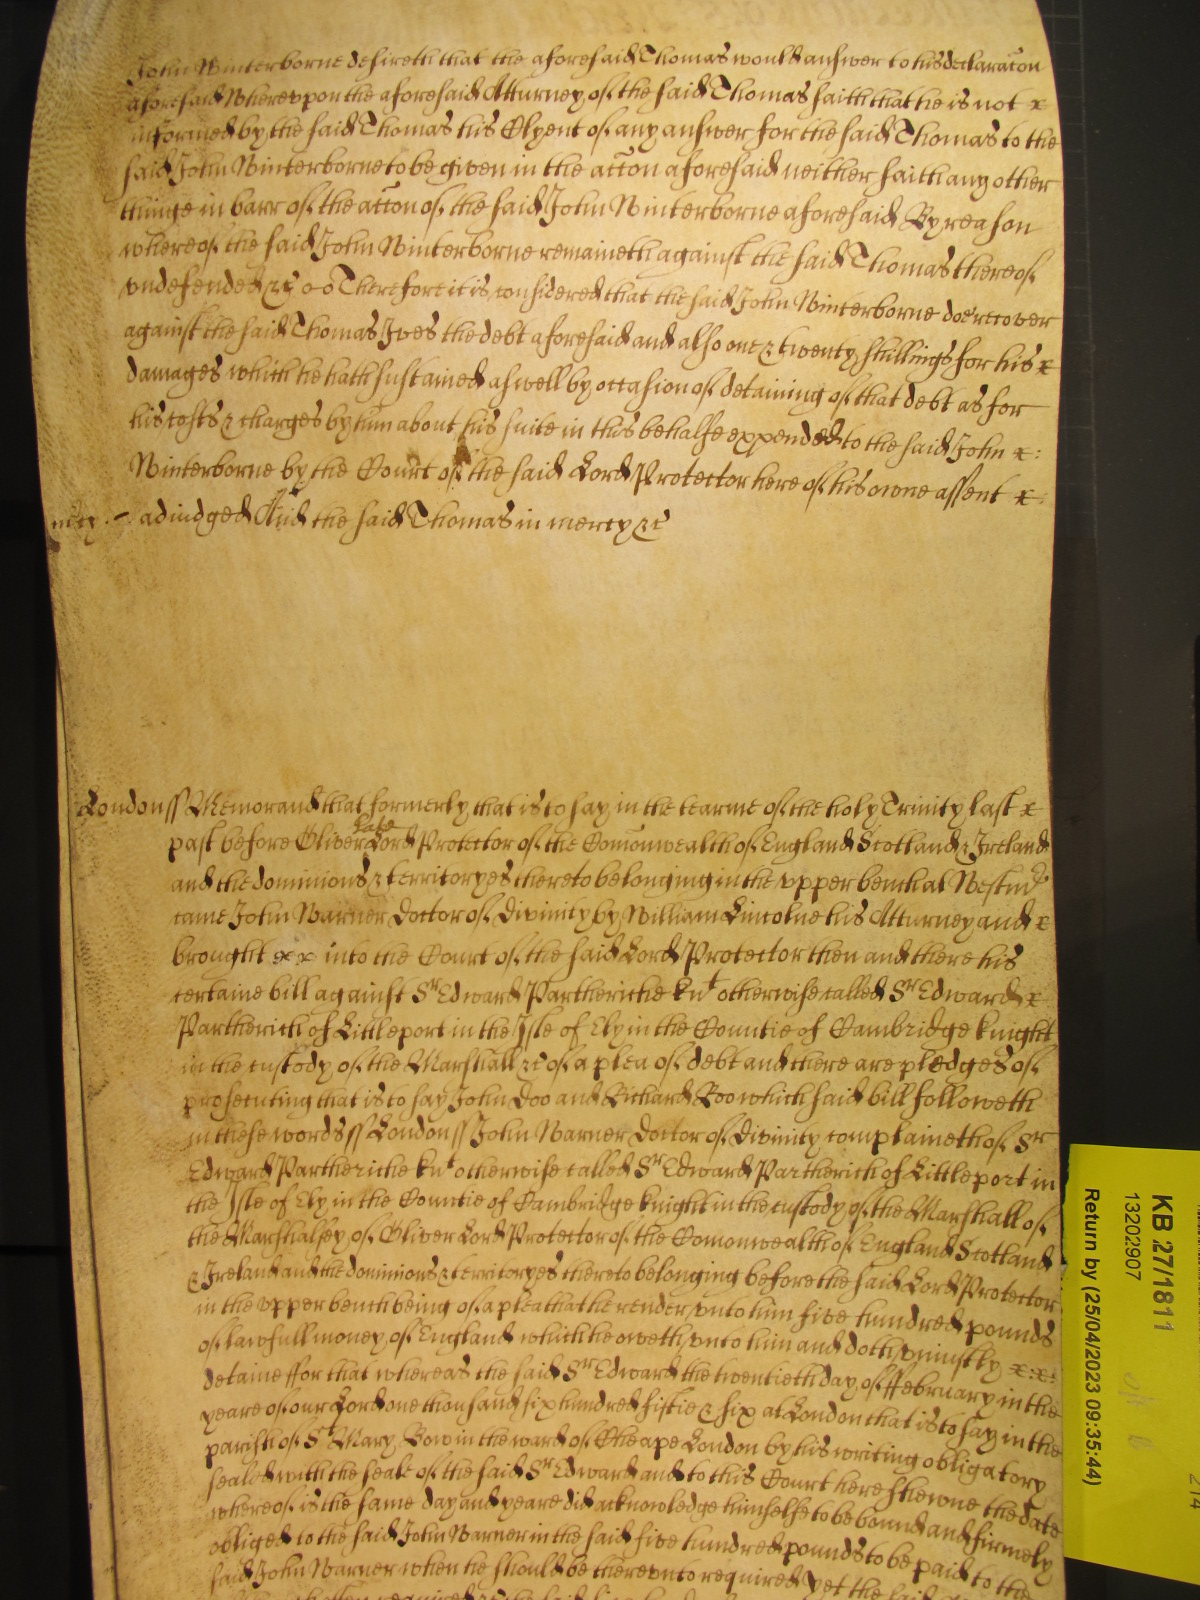 John Winterborne desireth that the aforesaid Thomas would answer to his declaracon
aforesaid Whereupon the aforesaid Atturney of the said Thomas saith that he is not x
informed by the said Thomas his Clyent of any answer for the said Thomas to the
said John Winterborne to be given in the accon aforesaid neither saith any other
thinge in barr of the accon of the said John Winterborne aforesaid By reason
whereof the said John Winterborne remaineth against the said Thomas thereof
vndefended &c Therefore it is considered that the said John Winterborne doe recover
against the said Thomas Ives the debt aforesaid and also one & twenty shillings for his x
damages which he hath sustained aswell by occasion of detaining of that debt as for
his costs & charges by him about his suite in this behalfe expended to the said John x:
Winterborne by the Court of the said Lord Protector here of his owne assent x:
mcy. adiudged And the said Thomas in mercy &c
London ss Memorand that formerly that is to say in the tearme of the holy Trinity last x
past before Oliver late Lord Protector of the Comonwealth of England Scotland & Ireland
and the dominions & territoryes thereto belonging in the vpper bench at Westmr
came John Warner Doctor of divinity by William Lincolne his Atturney and x
brought xx into the Court of the said Lord Protector then and there his
certaine bill against Sr Edward Partheriche knt otherwise called Sr Edward x
Partherich of Littleport in the Isle of Ely in the Countie of Cambridge knight
in the custody of the Marshall &c of a plea of debt and there are pledges of
prosecuting that is to say John Doo and Richard Roo which said bill followeth
in these words ss London ss John Warner Doctor of divinity complaineth of Sr
Edward Partheriche knt otherwise called Sr Edward Partherich of Littleport in
the Isle of Ely in the Countie of Cambridge knight in the custody of the Marshall of
the Marshalsey of Oliver Lord Protector of the Comonwealth of England Scotland
& Ireland and the dominions & territoryes thereto belonging before the said Lord Protector
in the vpper bench being of a plea that he render vnto him five hundred pounds
of lawfull money of England which he oweth vnto him and doth vniustly x:x:
detaine ffor that whereas the said Sr Edward the twentieth day of ffebruary in the
yeare of our Lord one thousand six hundred fiftie & six at London that is to say in the
parish of St Mary Bow in the ward of Cheape London by his writing obligatory
sealed with the seale of the said Sr Edward and to this Court here shewne the date
whereof is the same day and yeare did acknowledge himselfe to be bound and firmely
obliged to the said John Warner in the said five hundred pounds to be paid to the
said John Warner when he should be therevnto required yet the said
KB 27/1811
13202907
Return by (25/04/2023 09:35:44)
214